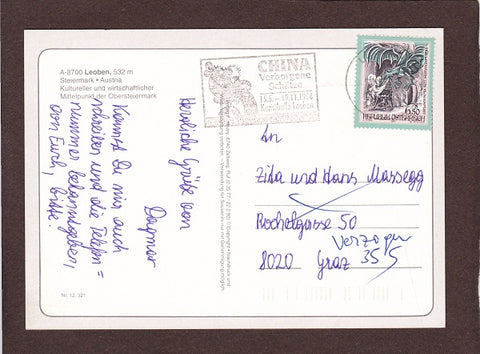 A-8700 Leoben, 532 m
Steiermark • Austria
Kultureller und wirtschaftlicher
Mittelpunkt der Obersteiermark
Kannst Du mir auch
schreiben und die Telefon=
nummer bekanntgeben,
von Euch, bitte!
Herzliche Grüße von
Dagmar
Nr. 12. 321
CHINA
Verborgene
Schätze
Kunsthalle Leoben
6.50
REPUBLIK ÖSTERREICH
An
Zita und Hans Massegg
Rochelgasse 50
Verzogen
8020 Graz 355